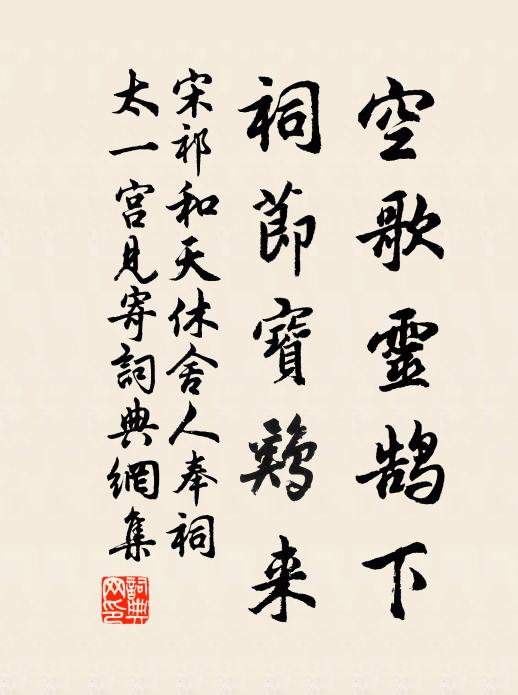 空歌靈鵠下
祠節寶鷄来
宋祁和天休舍人奉祠
太一宮見寄詞典網集
詞典網印